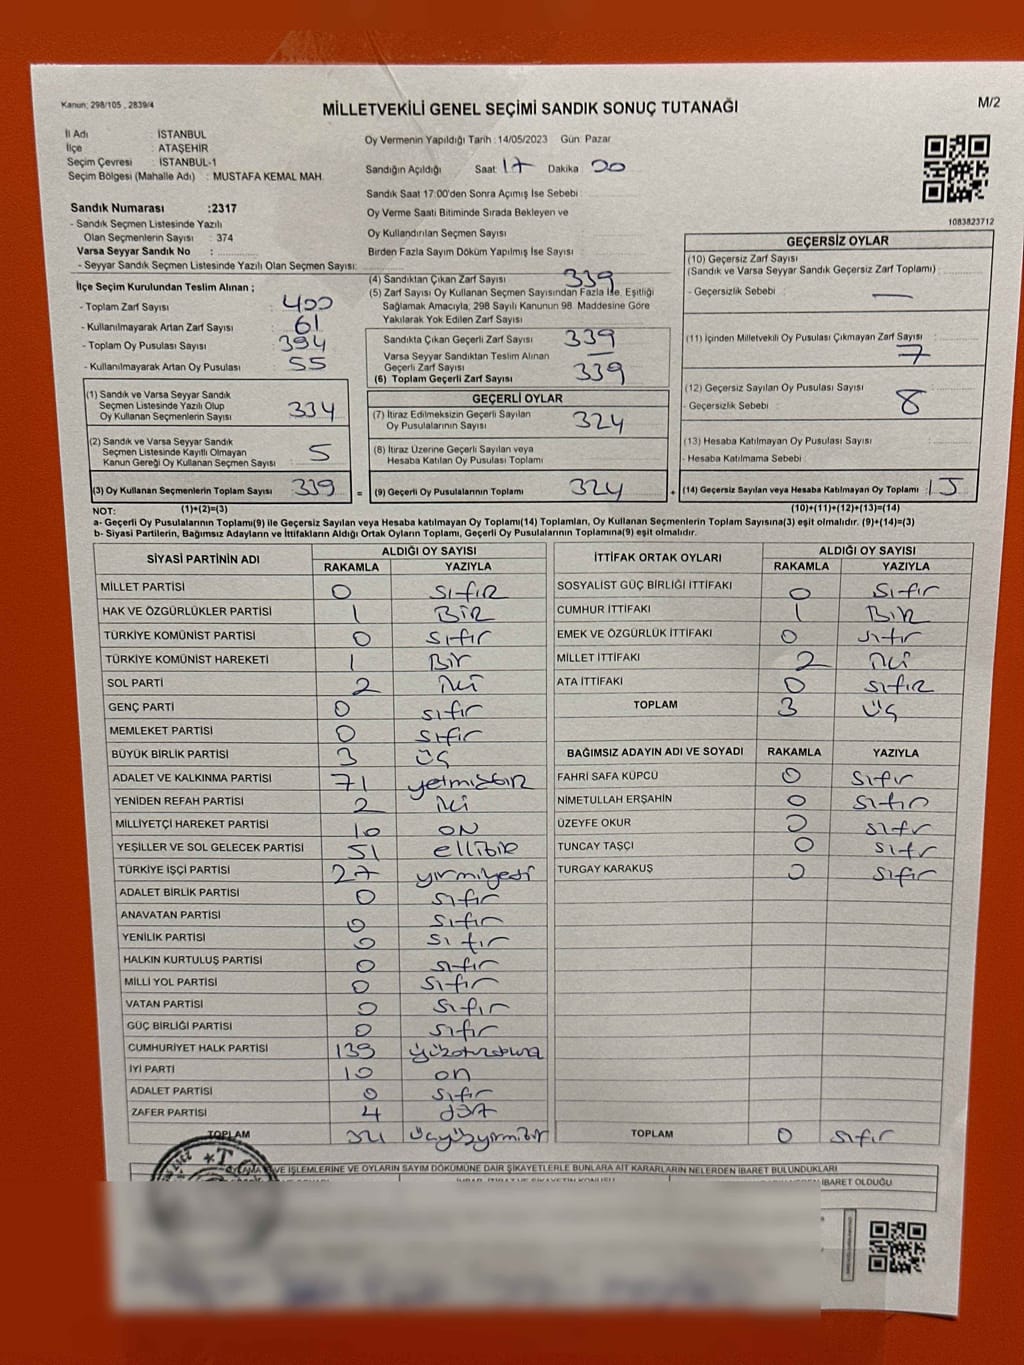 Kanun: 298/105 , 2839/4
MİLLETVEKİLİ GENEL SEÇİMİ SANDIK SONUÇ TUTANAĞI
M/2
İl Adı : İSTANBUL
İlçe : ATAŞEHİR
Seçim Çevresi : İSTANBUL-1
Seçim Bölgesi (Mahalle Adı) : MUSTAFA KEMAL MAH.
Sandık Numarası :2317
- Sandık Seçmen Listesinde Yazılı
Olan Seçmenlerin Sayısı : 374
Varsa Seyyar Sandık No :
- Seyyar Sandık Seçmen Listesinde Yazılı Olan Seçmen Sayısı:
Oy Vermenin Yapıldığı Tarih : 14/05/2023 Gün: Pazar
Sandığın Açıldığı Saat 17 Dakika 20
Sandık Saat 17:00'den Sonra Açımış İse Sebebi :
Oy Verme Saati Bitiminde Sırada Bekleyen ve
Oy Kullandırılan Seçmen Sayısı
Birden Fazla Sayım Döküm Yapılmış İse Sayısı
1083823712
İlçe Seçim Kurulundan Teslim Alınan ;
- Toplam Zarf Sayısı : 400
- Kullanılmayarak Artan Zarf Sayısı : 61
- Toplam Oy Pusulası Sayısı : 394
- Kullanılmayarak Artan Oy Pusulası : 55
(1) Sandık ve Varsa Seyyar Sandık
Seçmen Listesinde Yazılı Olup
Oy Kullanan Seçmenlerin Sayısı 334
(2) Sandık ve Varsa Seyyar Sandık
Seçmen Listesinde Kayıtlı Olmayan
Kanun Gereği Oy Kullanan Seçmen Sayısı 5
(3) Oy Kullanan Seçmenlerin Toplam Sayısı 339
(1)+(2)=(3)
(4) Sandıktan Çıkan Zarf Sayısı 339
(5) Zarf Sayısı Oy Kullanan Seçmen Sayısından Fazla İse, Eşitliği
Sağlamak Amacıyla, 298 Sayılı Kanunun 98. Maddesine Göre
Yakılarak Yok Edilen Zarf Sayısı
Sandıkta Çıkan Geçerli Zarf Sayısı 339
Varsa Seyyar Sandıktan Teslim Alınan
Geçerli Zarf Sayısı —
(6) Toplam Geçerli Zarf Sayısı 339
GEÇERLİ OYLAR
(7) İtiraz Edilmeksizin Geçerli Sayılan
Oy Pusulalarının Sayısı 324
(8) İtiraz Üzerine Geçerli Sayılan veya
Hesaba Katılan Oy Pusulası Toplamı
= (9) Geçerli Oy Pusulalarının Toplamı 324
GEÇERSİZ OYLAR
(10) Geçersiz Zarf Sayısı
(Sandık ve Varsa Seyyar Sandık Geçersiz Zarf Toplamı) :
- Geçersizlik Sebebi : —
(11) İçinden Milletvekili Oy Pusulası Çıkmayan Zarf Sayısı
7
(12) Geçersiz Sayılan Oy Pusulası Sayısı
- Geçersizlik Sebebi : 8
(13) Hesaba Katılmayan Oy Pusulası Sayısı
- Hesaba Katılmama Sebebi :
+ (14) Geçersiz Sayılan veya Hesaba Katılmayan Oy Toplamı 15
(10)+(11)+(12)+(13)=(14)
NOT:
a- Geçerli Oy Pusulalarının Toplamı(9) ile Geçersiz Sayılan veya Hesaba katılmayan Oy Toplamı(14) Toplamları, Oy Kullanan Seçmenlerin Toplam Sayısına(3) eşit olmalıdır. (9)+(14)=(3)
b- Siyasi Partilerin, Bağımsız Adayların ve İttifakların Aldığı Ortak Oyların Toplamı, Geçerli Oy Pusulalarının Toplamına(9) eşit olmalıdır.
SİYASİ PARTİNİN ADI ALDIĞI OY SAYISI
RAKAMLA YAZIYLA
MİLLET PARTİSİ 0 sıfır
HAK VE ÖZGÜRLÜKLER PARTİSİ 1 Bir
TÜRKİYE KOMÜNİST PARTİSİ 0 sıfır
TÜRKİYE KOMÜNİST HAREKETİ 1 Bir
SOL PARTİ 2 iki
GENÇ PARTİ 0 sıfır
MEMLEKET PARTİSİ 0 sıfır
BÜYÜK BİRLİK PARTİSİ 3 üç
ADALET VE KALKINMA PARTİSİ 71 yetmişbir
YENİDEN REFAH PARTİSİ 2 iki
MİLLİYETÇİ HAREKET PARTİSİ 10 on
YEŞİLLER VE SOL GELECEK PARTİSİ 51 ellibir
TÜRKİYE İŞÇİ PARTİSİ 27 yirmiyedi
ADALET BİRLİK PARTİSİ 0 sıfır
ANAVATAN PARTİSİ 0 sıfır
YENİLİK PARTİSİ 0 sıfır
HALKIN KURTULUŞ PARTİSİ 0 sıfır
MİLLİ YOL PARTİSİ 0 sıfır
VATAN PARTİSİ 0 sıfır
GÜÇ BİRLİĞİ PARTİSİ 0 sıfır
CUMHURİYET HALK PARTİSİ 139 yüzotuzdokuz
İYİ PARTİ 10 on
ADALET PARTİSİ 0 sıfır
ZAFER PARTİSİ 4 dört
TOPLAM 321 üçyüzyirmibir
İTTİFAK ORTAK OYLARI ALDIĞI OY SAYISI
RAKAMLA YAZIYLA
SOSYALİST GÜÇ BİRLİĞİ İTTİFAKI 0 sıfır
CUMHUR İTTİFAKI 1 Bir
EMEK VE ÖZGÜRLÜK İTTİFAKI 0 sıfır
MİLLET İTTİFAKI 2 iki
ATA İTTİFAKI 0 sıfır
TOPLAM 3 üç
BAĞIMSIZ ADAYIN ADI VE SOYADI RAKAMLA YAZIYLA
FAHRİ SAFA KÜPCÜ 0 sıfır
NİMETULLAH ERŞAHİN 0 sıfır
ÜZEYFE OKUR 0 sıfır
TUNCAY TAŞÇI 0 sıfır
TURGAY KARAKUŞ 0 sıfır
TOPLAM 0 sıfır
VE İŞLEMLERİNE VE OYLARIN SAYIM DÖKÜMÜNE DAİR ŞİKAYETLERLE BUNLARA AİT KARARLARIN NELERDEN İBARET BULUNDUKLARI
İBARET OLDUĞU